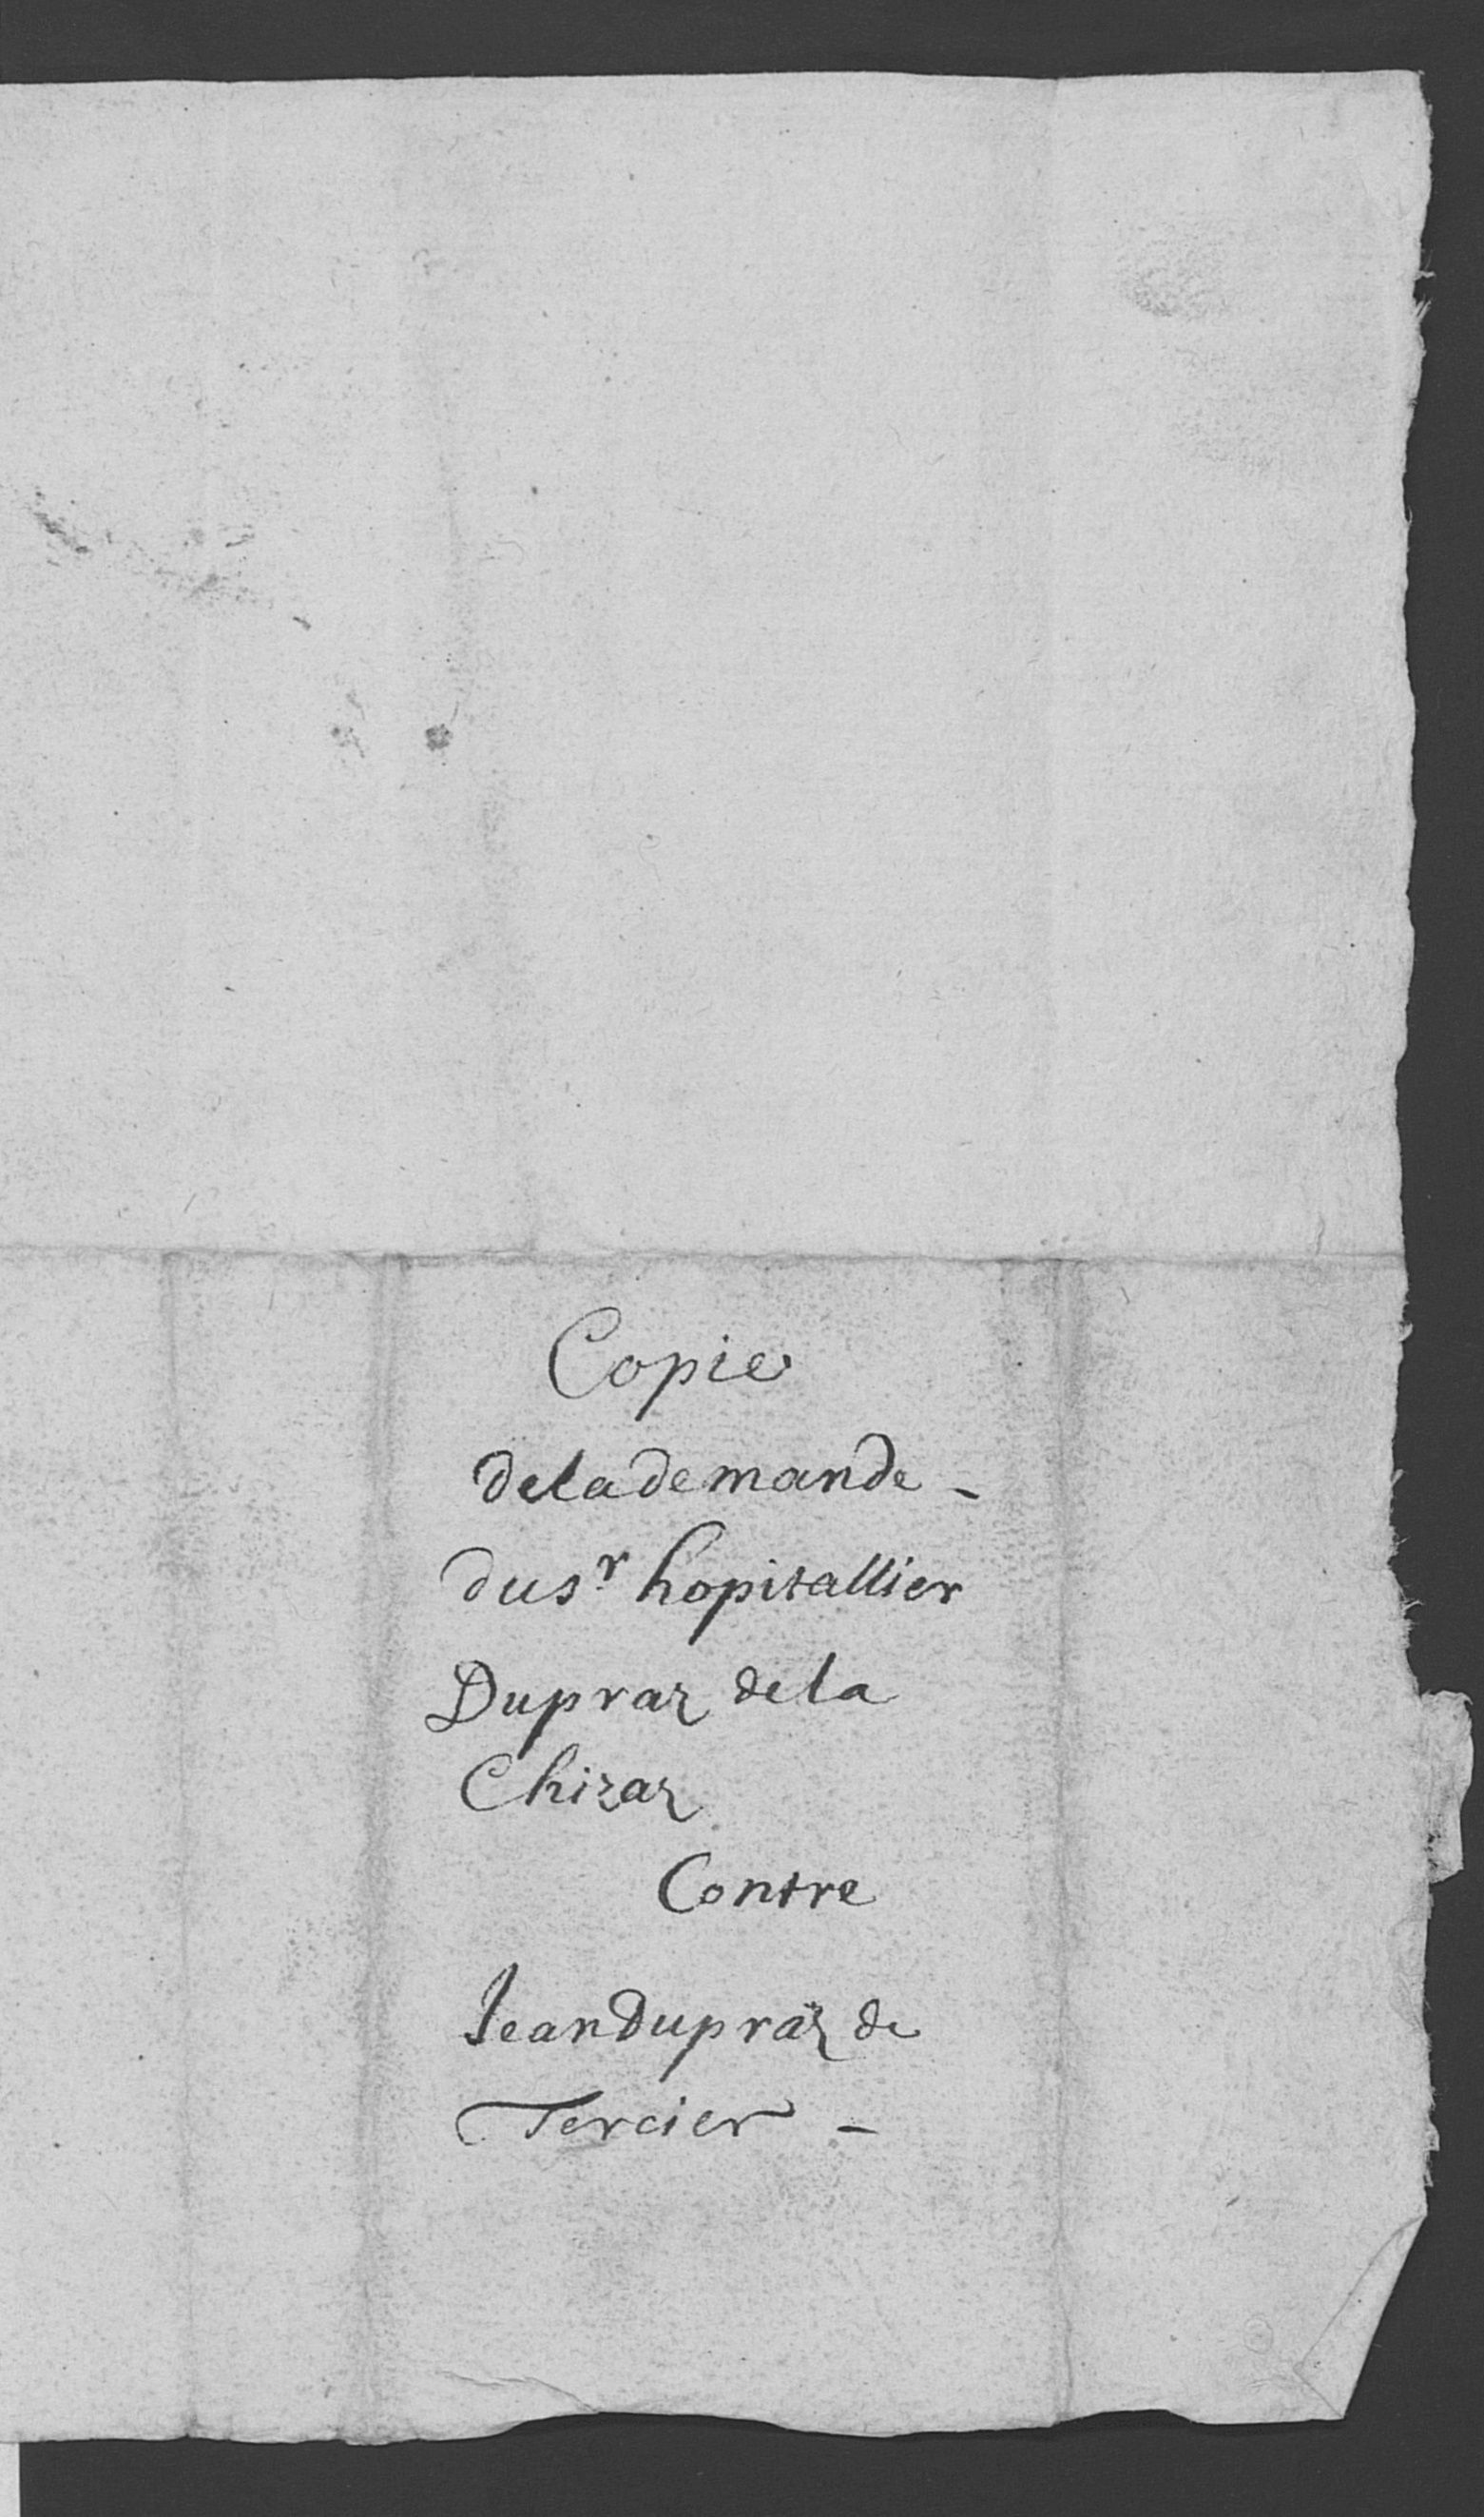 Copie
de la demande -
du sr hopitallier
Dupraz de la
Chizaz
Contre
Jean Dupraz de
Tercier -